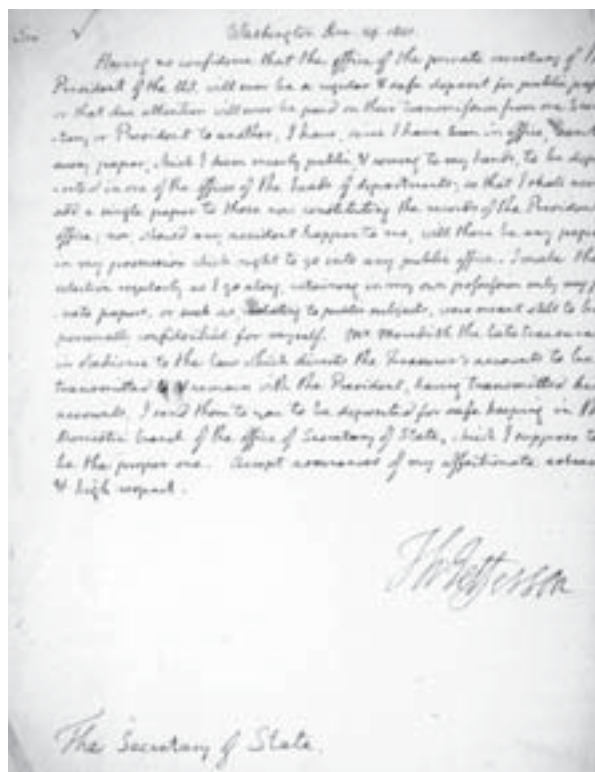 Sir Washington Dec. 29. 1801
Having no confidence that the office of the private secretary of the
President of the US. will ever be a regular & safe deposit for public papers
or that due attention will ever be paid on their transmission from one Secre
-tary or President to another, I have, since I have been in office, sent
every paper, which I deem merely public, & coming to my hands, to be depo
-sited in one of the offices of the heads of departments; so that I shall never
add a single paper to those now constituting the records of the President's
office; nor, should any accident happen to me, will there be any papers
in my possession which ought to go into any public office. I make the
selection regularly as I go along, retaining in my own possession only my pri
-vate papers, or such as, relating to public subjects, were meant still to be
personally confidential for myself. Mr Meredith the late treasurer
in obedience to the law which directs the Treasurer's accounts to be
transmitted & remain with the President, having transmitted his
accounts, I send them to you to be deposited for safe keeping in the
Domestic branch of the office of Secretary of State, which I suppose to
be the proper one. Accept assurances of my affectionate esteem
& high respect.
Th Jefferson
The Secretary of State.